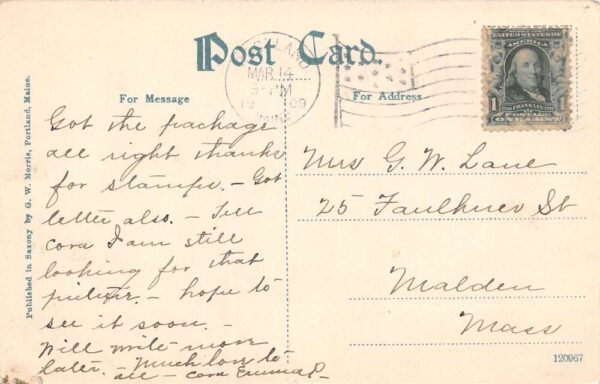 Post Card.
For Message
For Address
MAR 14
9- PM
19 09
SERIES 1902
UNITED STATES OF
AMERICA
1 1
FRANKLIN
POSTAGE
ONE CENT
Got the package
all right thanks
for stamps. – Got
letter also. – Tell
cora I am still
looking for that
picture. – hope to
see it soon. –
Will write more
later. – Much love to
all – Emma P–
Mrs G. W. Lane
25 Faulkner St
Malden
Mass
Published in Saxony by G. W. Morris, Portland, Maine.
120967